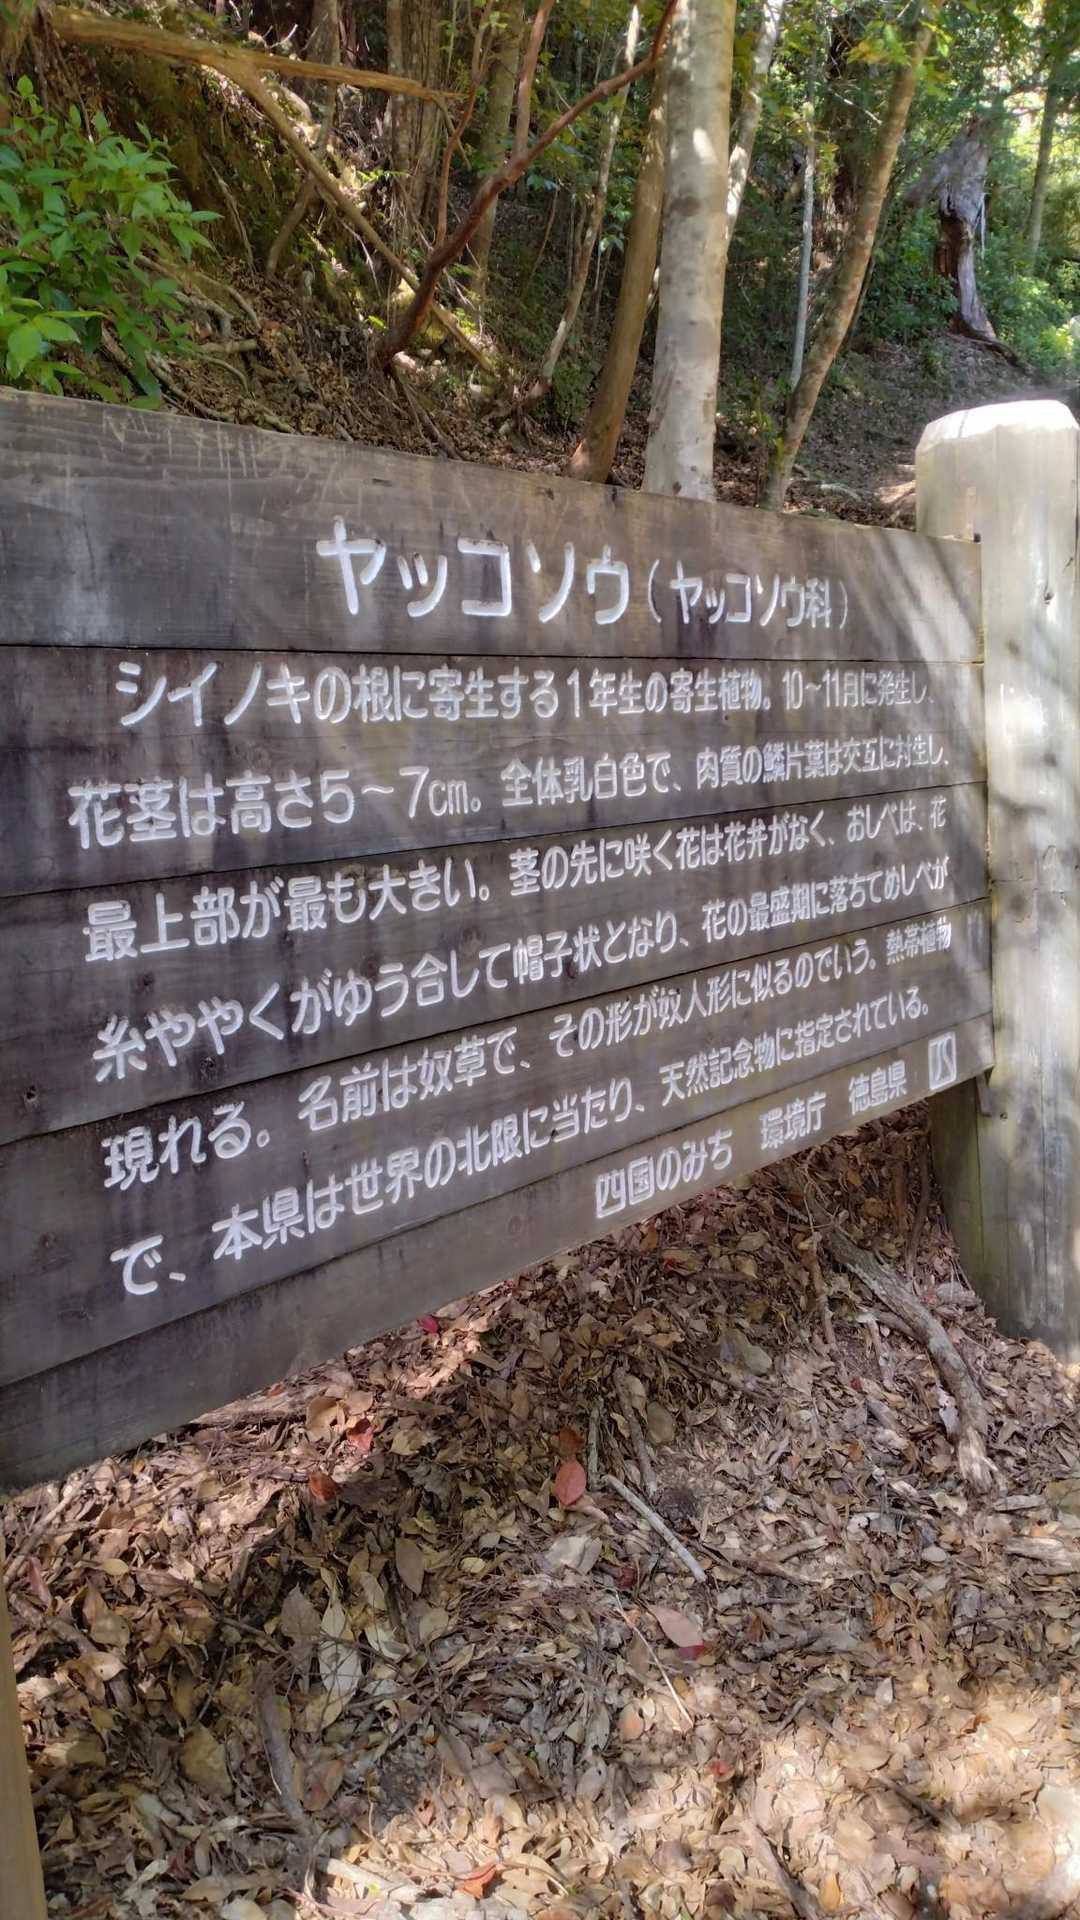 ヤッコソウ(ヤッコソウ科)
シイノキの根に寄生する1年生の寄生植物。10〜11月に発生し、
花茎は高さ5〜7cm。全体乳白色で、肉質の鱗片葉は交互に対生し、
最上部が最も大きい。茎の先に咲く花は花弁がなく、おしべは、花
糸ややくがゆう合して帽子状となり、花の最盛期に落ちてめしべが
現れる。名前は奴草で、その形が奴人形に似るのでいう。熱帯植物
で、本県は世界の北限に当たり、天然記念物に指定されている。
四国のみち 環境庁 徳島県